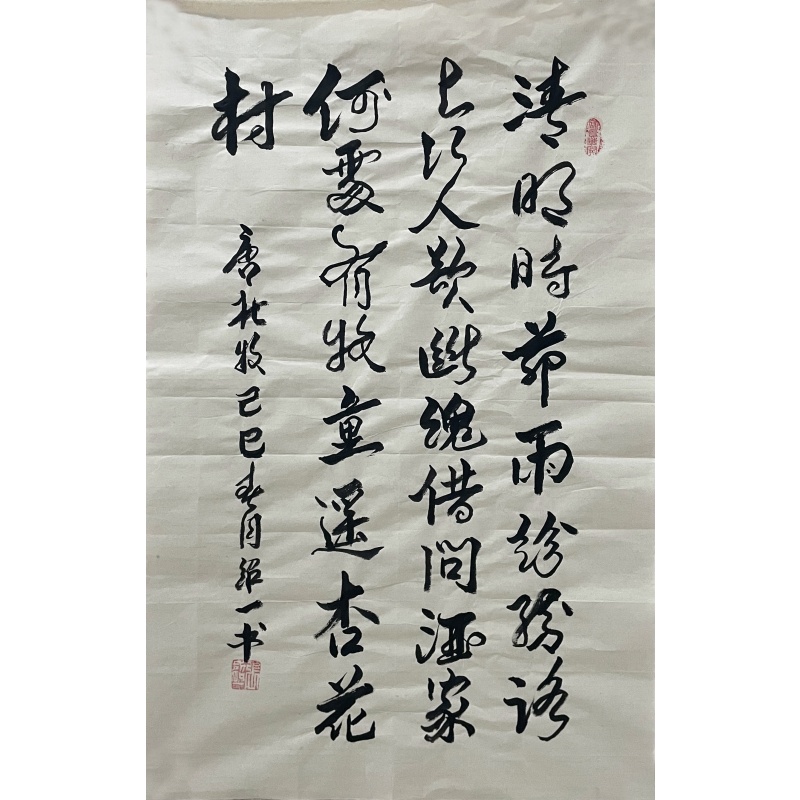 清明時節雨紛紛路
上行人欲斷魂借問酒家
何處有牧童遥杏花
村
唐杜牧己巳春周紹一书